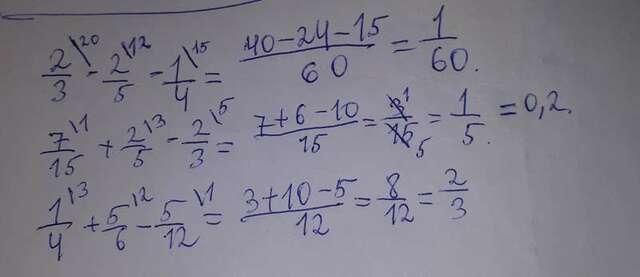 2/3\20 - 2/5\12 - 1/4\15 = 40-24-15/60 = 1/60.
7/15\1 + 2/5\3 - 2/3\5 = 7+6-10/15 = 3 1/15 5 = 1/5. = 0,2.
1/4\3 + 5/6\2 - 5/12\1 = 3+10-5/12 = 8/12 = 2/3